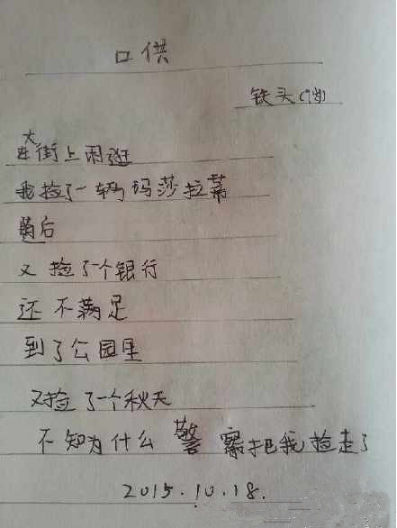 口供
铁头(8岁)
大街上闲逛
我捡了一辆玛莎拉蒂
然后
又捡了个银行
还不满足
到了公园里
又捡了一个秋天
不知为什么警察把我捡走了
2015.10.18.